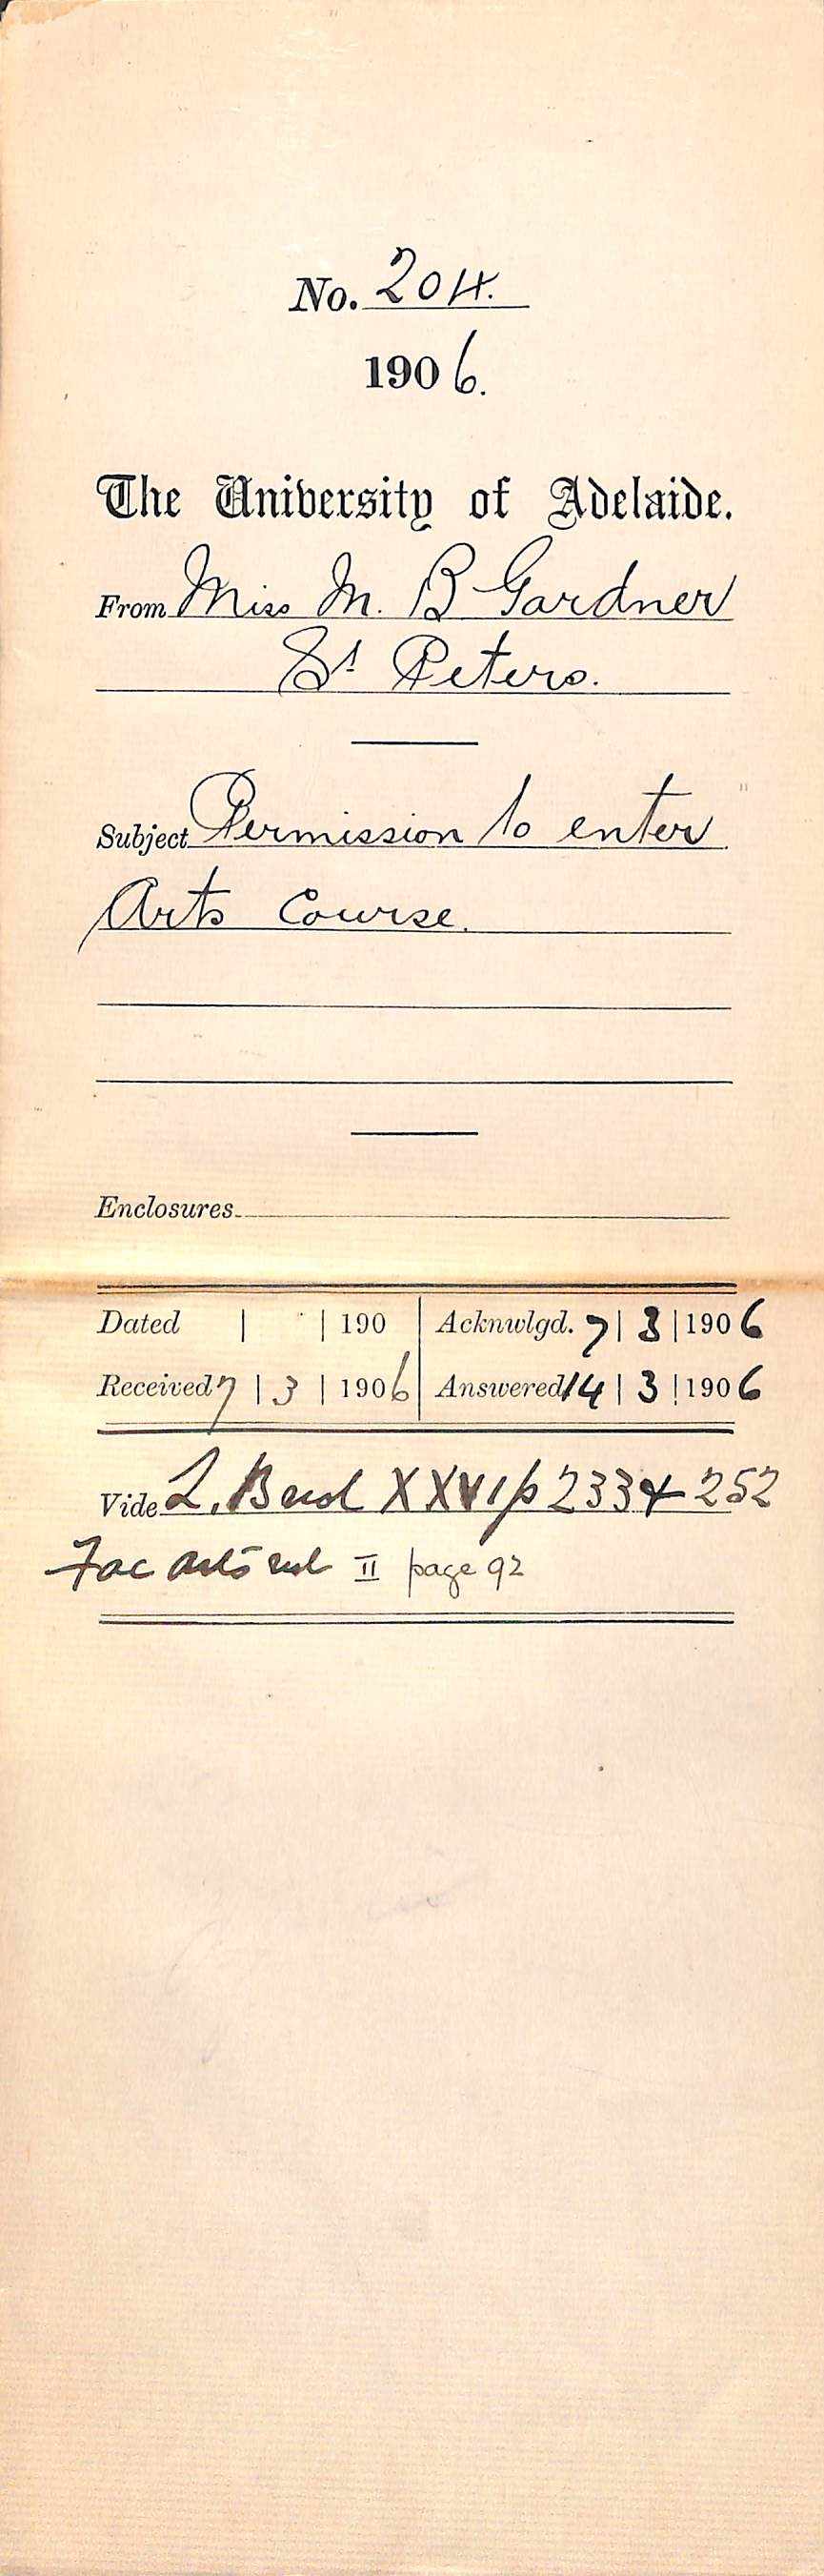 No. 204.
1906.
The University of Adelaide.
From Miss M. B Gardner
St Peters.
Subject Permission to enter
Arts Course.
Enclosures
Dated | | 190 | Acknwlgd. 7 | 3 | 1906
Received 7 | 3 | 1906 | Answered 14 | 3 | 1906
Vide L. XXVI p 233 & 252
Fac arts II page 92